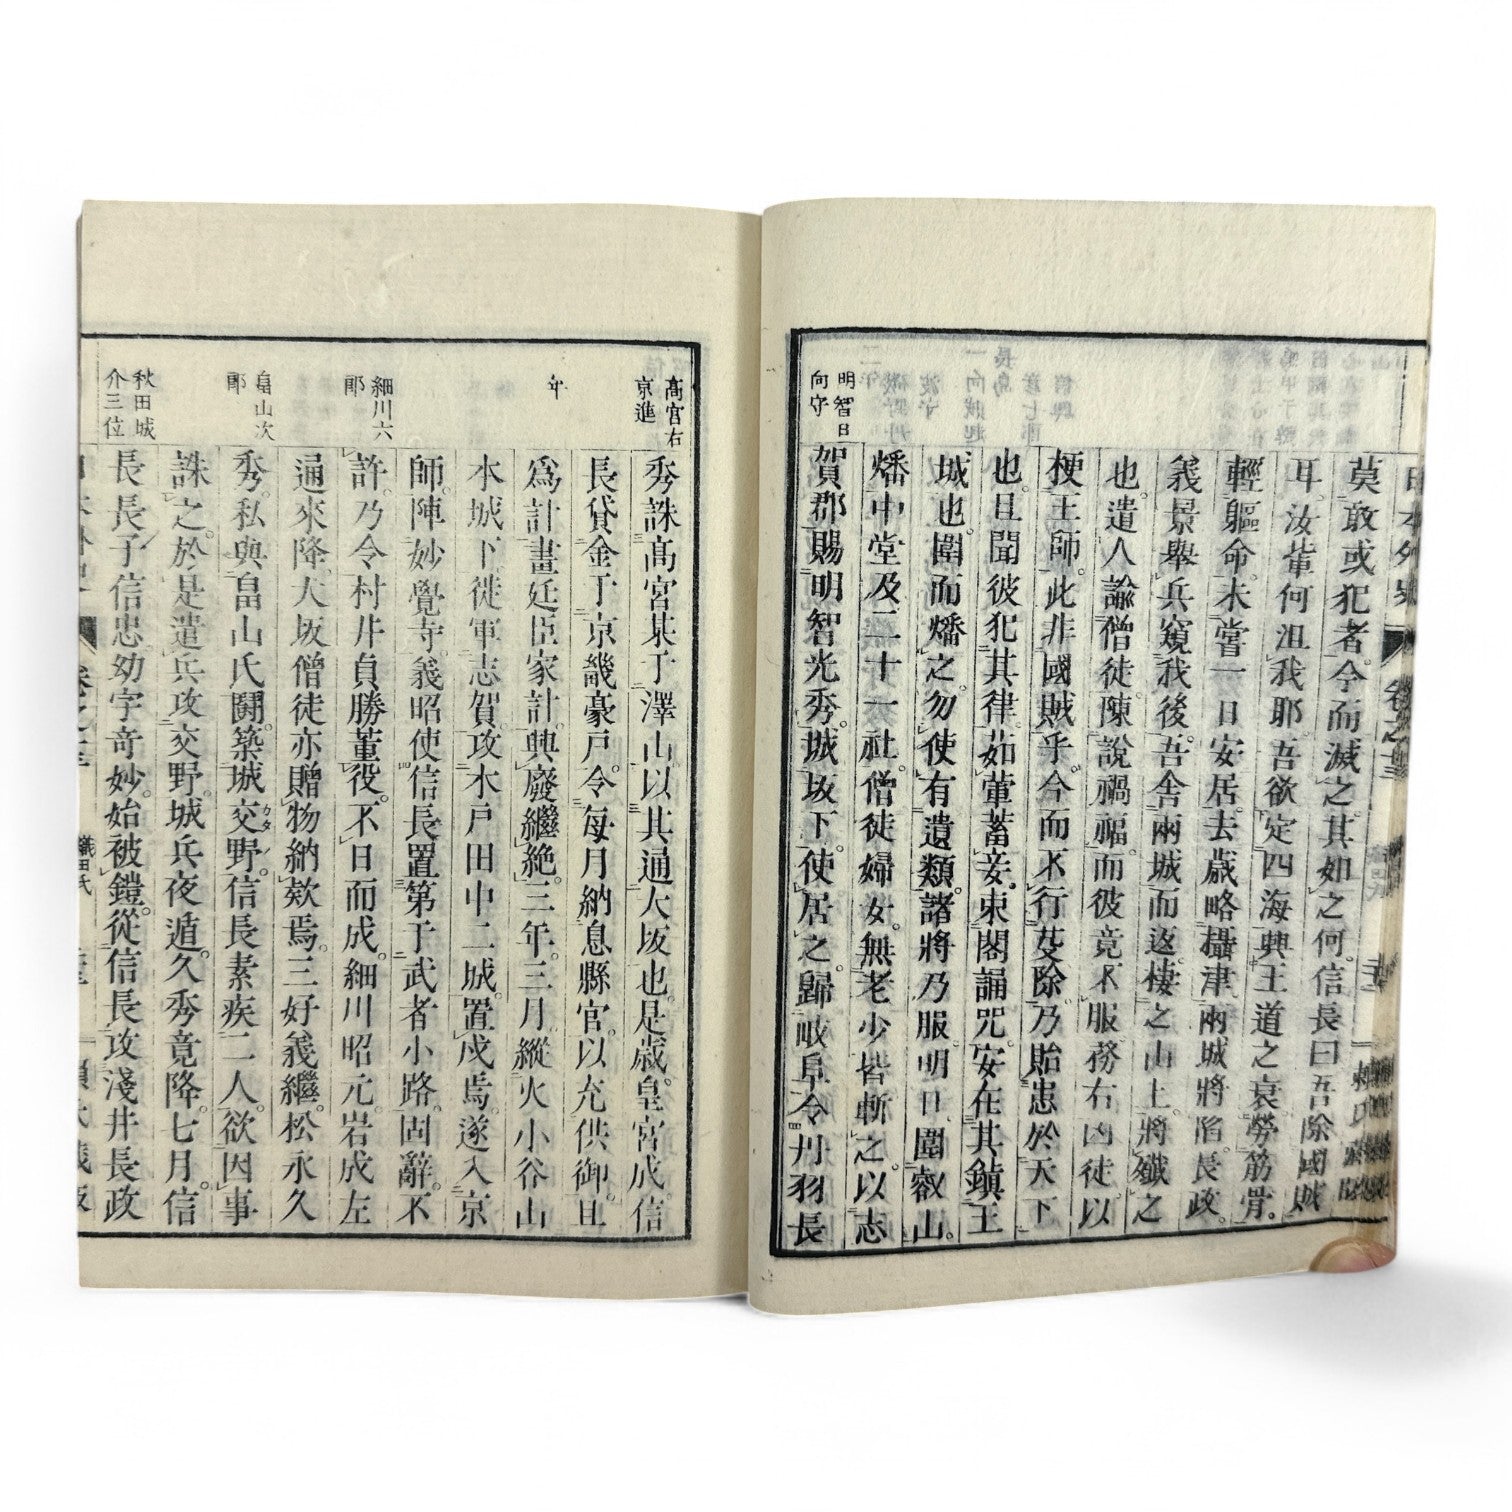 日本外史 卷之十三
莫敢或犯者。今而滅之。其如之何。信長曰吾除國賊
耳。汝輩何沮我耶吾欲定四海興王道之衰。勞筋骨。
輕軀命。未嘗一日安居。去歲略攝津。兩城將陷。長政
義景舉兵窺我後。吾舍兩城而返。棲之山上。將殲之
也。遣人諭僧徒。陳說禍福。而彼竟不服。務右凶徒以
梗王師。此非國賊乎。今而不行芟除。乃貽患於天下
也。且聞彼犯其律。茹葷蓄妾。束閣誦咒。安在其鎮王
城也。圍而燔之。勿使有遺類。諸將乃服。明日圍叡山。
燔中堂及二十一社。僧徒婦女。無老少皆斬之。以志
明智日向守
賀郡賜明智光秀。城坂下。使居之。歸岐阜。令丹羽長
高宮右京進
秀誅高宮某于澤山以其通大坂也。是歲。皇宮成。信
長貸金于京畿豪戶。令每月納息縣官。以充供御。且
年
爲計畫廷臣家計。興廢繼絶。三年。三月。縱火小谷山
本城下。徙軍志賀攻木戶田中二城。置戍焉。遂入京
師。陣妙覺寺。義昭使信長置第于武者小路。固辭。不
細川六郎
許。乃令村井貞勝董役。不日而成。細川昭元。岩成左
通來降。大坂僧徒亦贈物納欵焉。三好義繼。松永久
畠山次郎
秀。私與畠山氏鬪。築城交野。信長素疾二人。欲因事
誅之。於是遣兵攻交野。城兵夜遁。久秀竟降。七月。信
秋田城介三位
長長子信忠。幼字奇妙。始被鎧。從信長攻淺井長政
織田氏